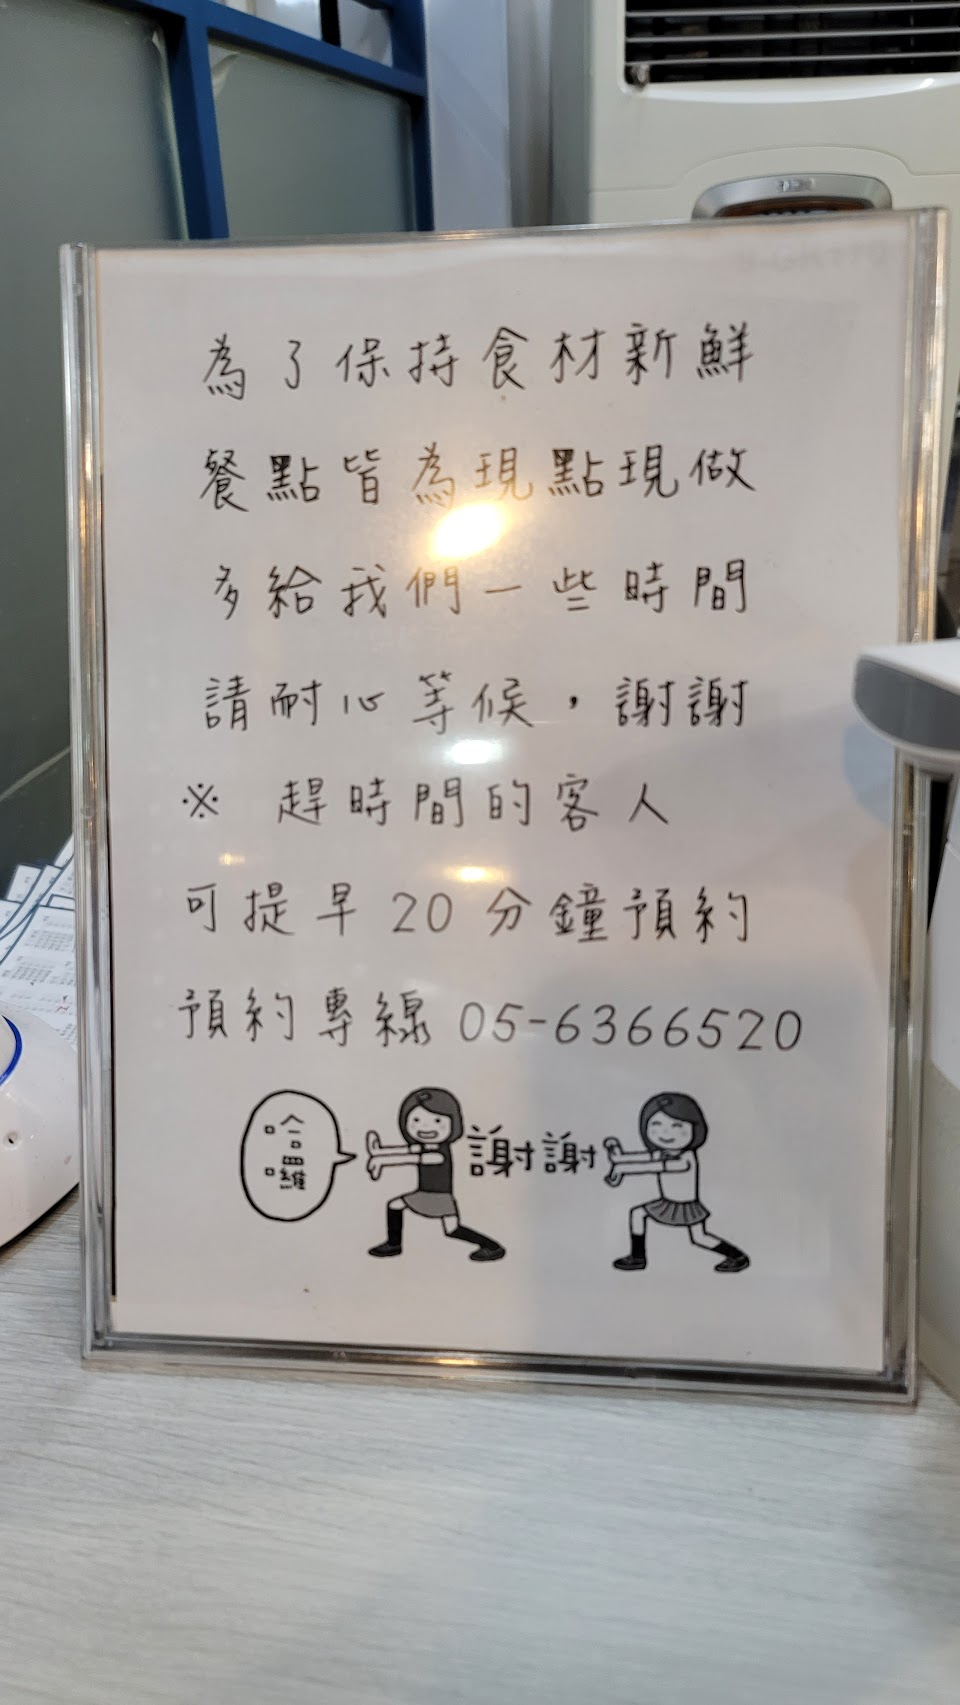 為了保持食材新鮮
餐點皆為現點現做
多給我們一些時間
請耐心等候，謝謝
※ 趕時間的客人
可提早20分鐘預約
預約專線 05-6366520
哈囉
謝謝